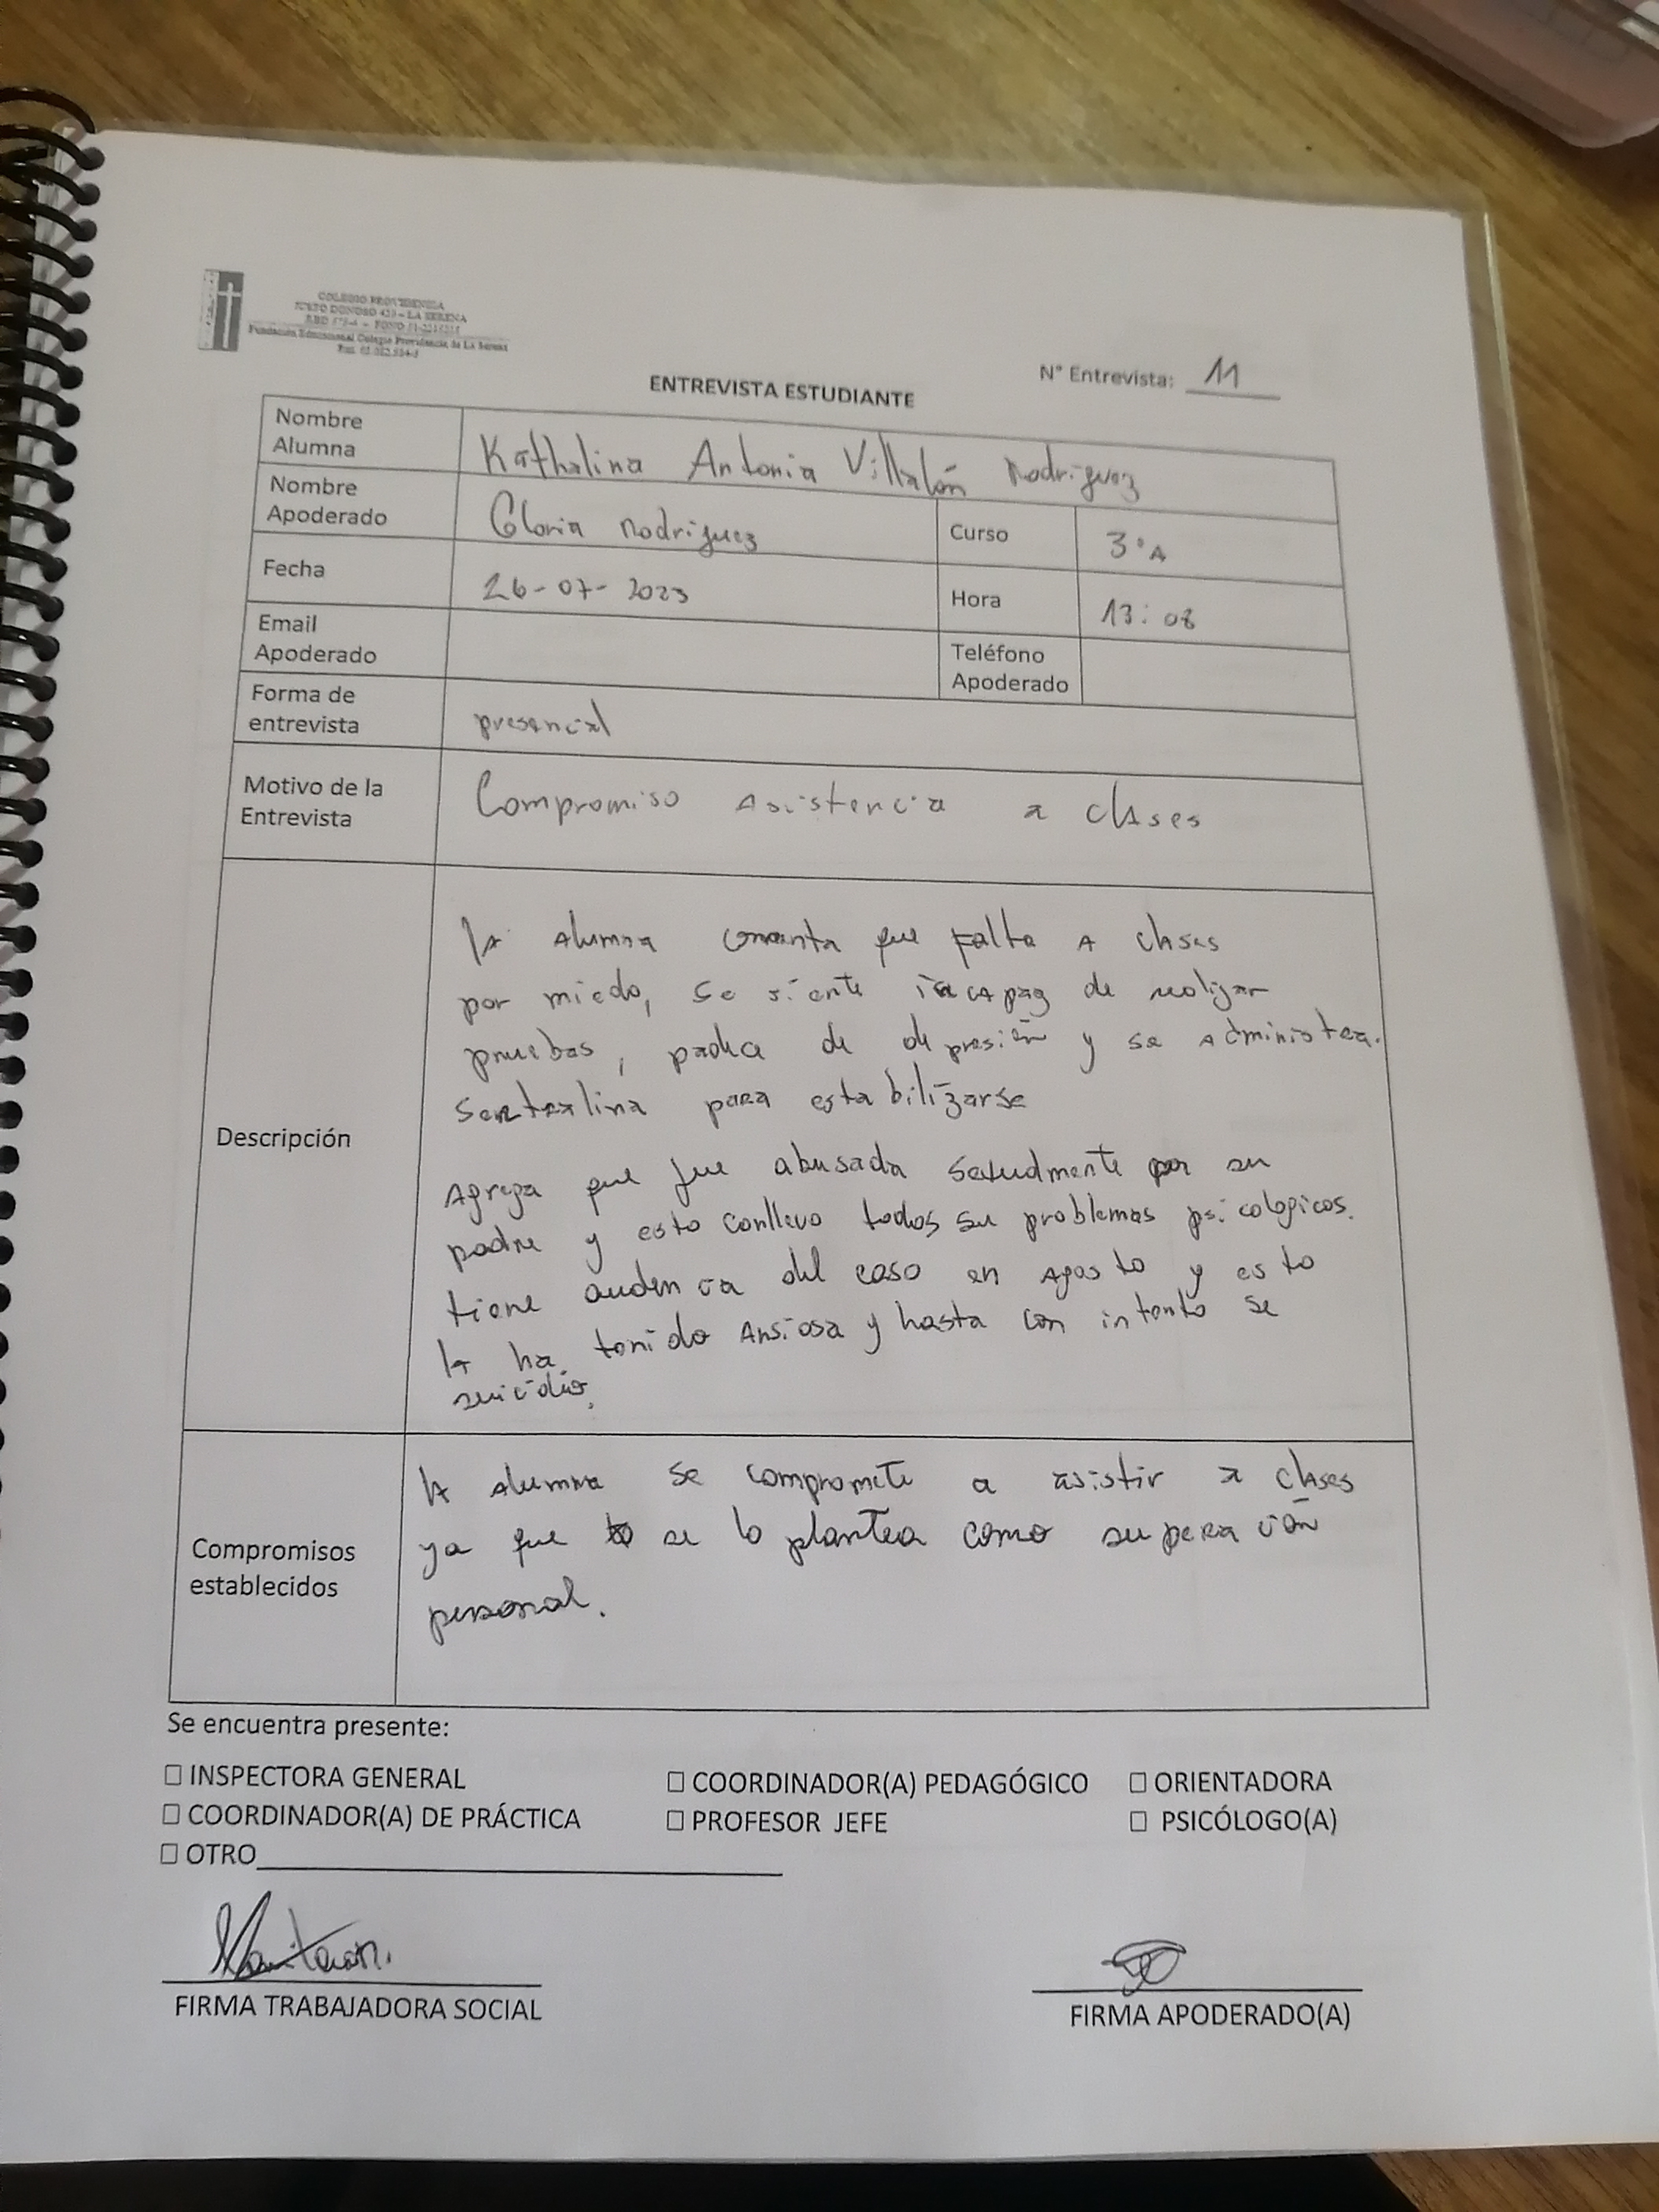 COLEGIO PROVIDENCIA
JUSTO DONOSO 420 – LA SERENA
Fundación Educacional Colegio Providencia de La Serena
N° Entrevista: 11
ENTREVISTA ESTUDIANTE
Nombre Alumna Kathalina Antonia Villalón Rodriguez
Nombre Apoderado Gloria Rodriguez Curso 3°A
Fecha 26-07-2023 Hora 13:08
Email Apoderado Teléfono Apoderado
Forma de entrevista presencial
Motivo de la Entrevista Compromiso Asistencia a clases
Descripción
la alumna comenta que falta a clases
por miedo, se siente incapaz de realizar
pruebas, padece de depresión y se administra.
Sertralina para estabilizarse
Agrega que fue abusada sexualmente por su
padre y esto conllevo todos su problemas psicologicos.
tiene audencia del caso en Agosto y esto
la ha tenido Ansiosa y hasta con intento se
suicidio.
Compromisos establecidos
la alumna se compromete a asistir a clases
ya que se lo plantea como superación
personal.
Se encuentra presente:
☐ INSPECTORA GENERAL ☐ COORDINADOR(A) PEDAGÓGICO ☐ ORIENTADORA
☐ COORDINADOR(A) DE PRÁCTICA ☐ PROFESOR JEFE ☐ PSICÓLOGO(A)
☐ OTRO
FIRMA TRABAJADORA SOCIAL FIRMA APODERADO(A)